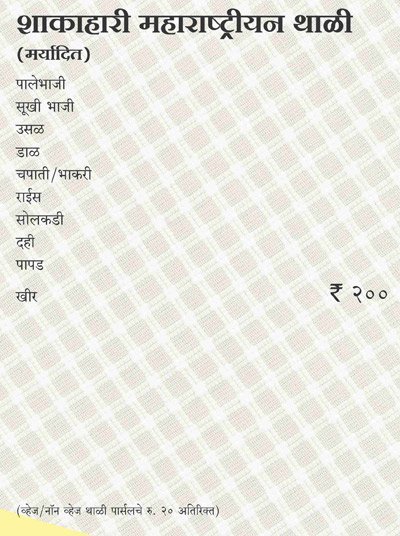 शाकाहारी महाराष्ट्रीयन थाळी
(मर्यादित)
पालेभाजी
सूखी भाजी
उसळ
डाळ
चपाती/भाकरी
राईस
सोलकडी
दही
पापड
खीर ₹ २००
(व्हेज/नॉन व्हेज थाळी पार्सलचे रु. २० अतिरिक्त)